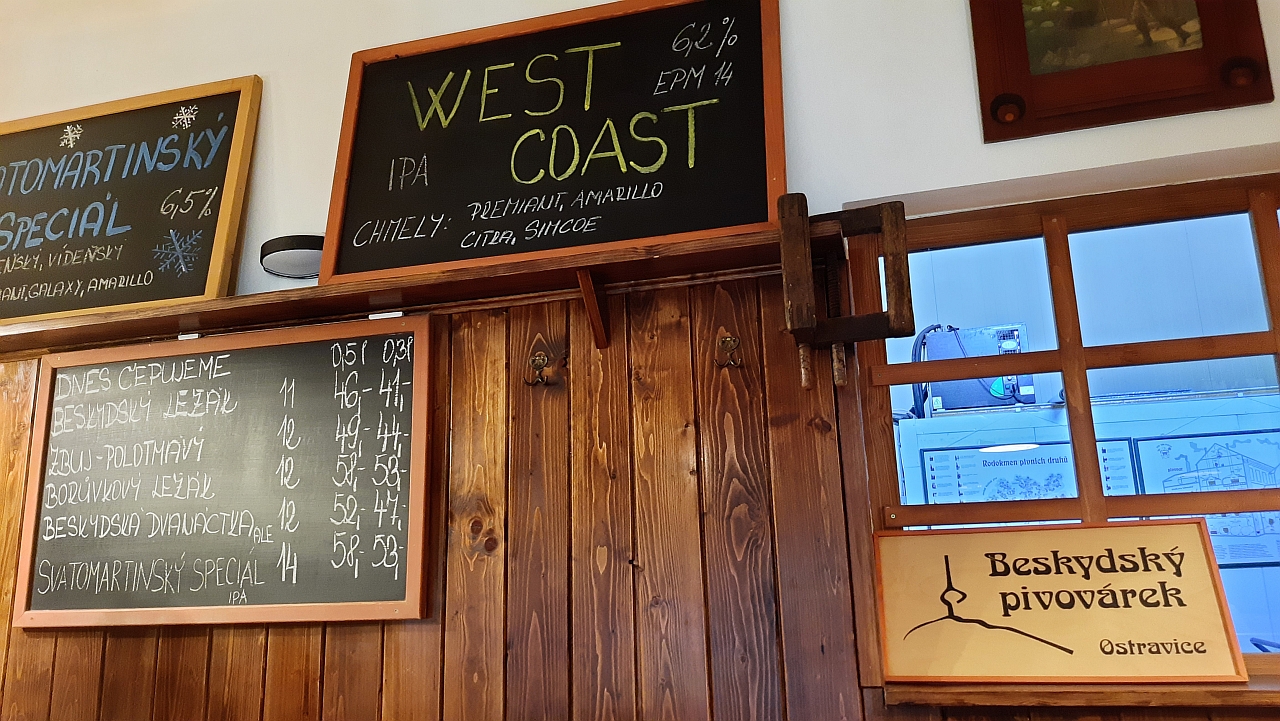 SPECIÁL
6,5%
VÍDEŇSKÝ
GALAXY, AMARILLO
WEST
COAST
6,2%
EPM 14
IPA
CHMELY: PREMIANT, AMARILLO
CITRA, SIMCOE
DNES ČEPUJEME 0,5l 0,3l
BESKYDSKÝ LEŽÁK 11 46,- 41,-
ZBUJ-POLOTMAVÝ 12 49,- 44,-
BORŮVKOVÝ LEŽÁK 12 58,- 53,-
BESKYDSKÁ DVANÁCTKA ALE 12 52,- 47,-
SVATOMARTINSKÝ SPECIÁL 14 58,- 53,-
IPA
Rodokmen pivních druhů
Beskydský
pivovárek
Ostravice